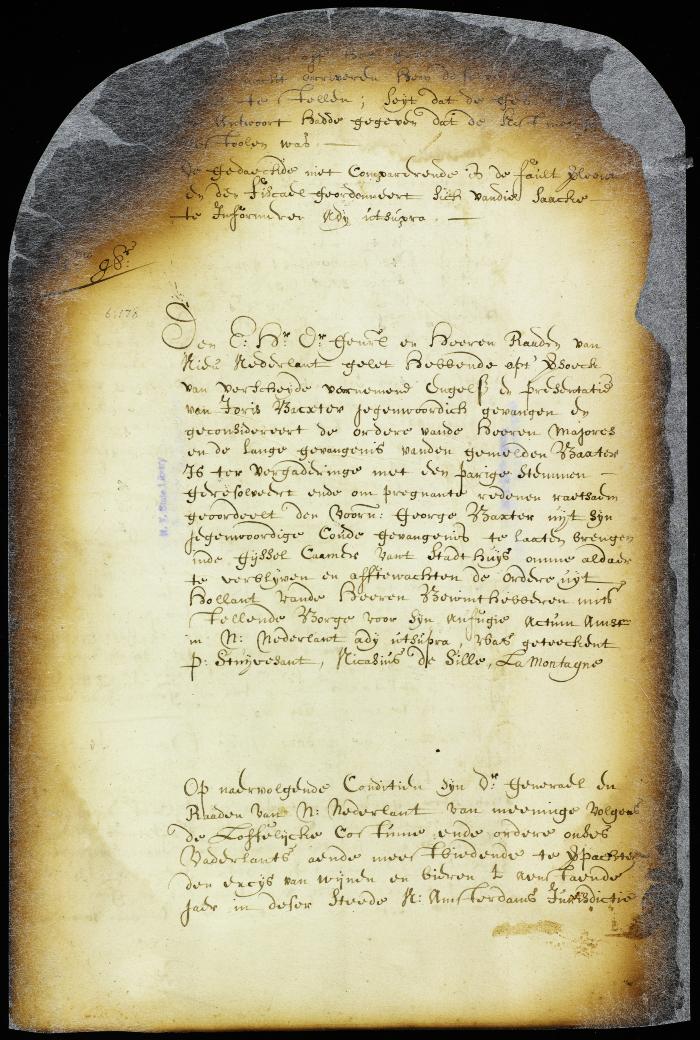 te stellen; seyt dat de
Antwoort hadde gegeven dat de
stoolen was —
de gedaechde niet Comparerende is de fault
en den Fiscael geordonneert sich van die Saacke
te Informeren Ady utsupra. —
98
6:176
Den E: Hr Dr Genrl en Heeren Raaden van
Nieu Nederlant gelet hebbende opt versoeck
van verscheyde vernemens Engelss en presentatie
van Joris Baxter Jegenwoordich gevangen en
geconsidereert de ordere vande Heeren Majores
en de lange gevangenis vanden gemelden Baxter
Is ter vergaderinge met een parige stemmen —
geresolveert ende om pregnante redenen raetsaem
geoordeelt den Voorn: George Baxter uyt syn
Jegenwoordige Coude gevangenis te laaten brengen
inde Gyssel Caamer vant Stadthuys omme aldaer
te verblyven en afftewachten de ordere uyt
Hollant vande Heeren Bewinthebberen mits
stellende Borge voor syn Anfugie Actum Amst
in N: Nederlant ady utsupra, Was geteeckent
P: Stuyvesant, Nicasius de Sille, La Montagne
N. Y. State Library
Op naervolgende Conditien syn Dr Generael en
Raaden van N: Nederlant van meeninge volgens
de Loffelycke Costume ende ordere onses
Vaderlants aende meestbiedende te verpachten
den excys van wynen en bieren t aenstaende
Jaer in deser Steede N: Amsterdams Jurisdictie